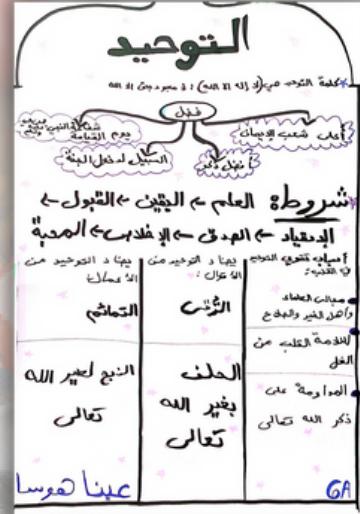 التوحيد
كلمة التوحيد هي (لا إله إلا الله) : لا معبود بحق إلا الله
فضل
أعلى شعب الإيمان
أفضل ذكر
السبيل لدخول الجنة
شفاعة النبي ﷺ
يوم القيامة
شروطه: العلم ← اليقين ← القبول ←
الانقياد ← الصدق ← الإخلاص ← المحبة
أسباب التوحيد
في القلب:
مجالس العلماء
وأهل الخير والصلاح
سلامة القلب من
الغل
المداومة على
ذكر الله تعالى
يضاد التوحيد من
الأقوال:
الرُّقى
الحلف
بغير الله
تعالى
يضاد التوحيد من
الأعمال:
التمائم
الذبح لغير الله
تعالى
6A
عينا هوسا